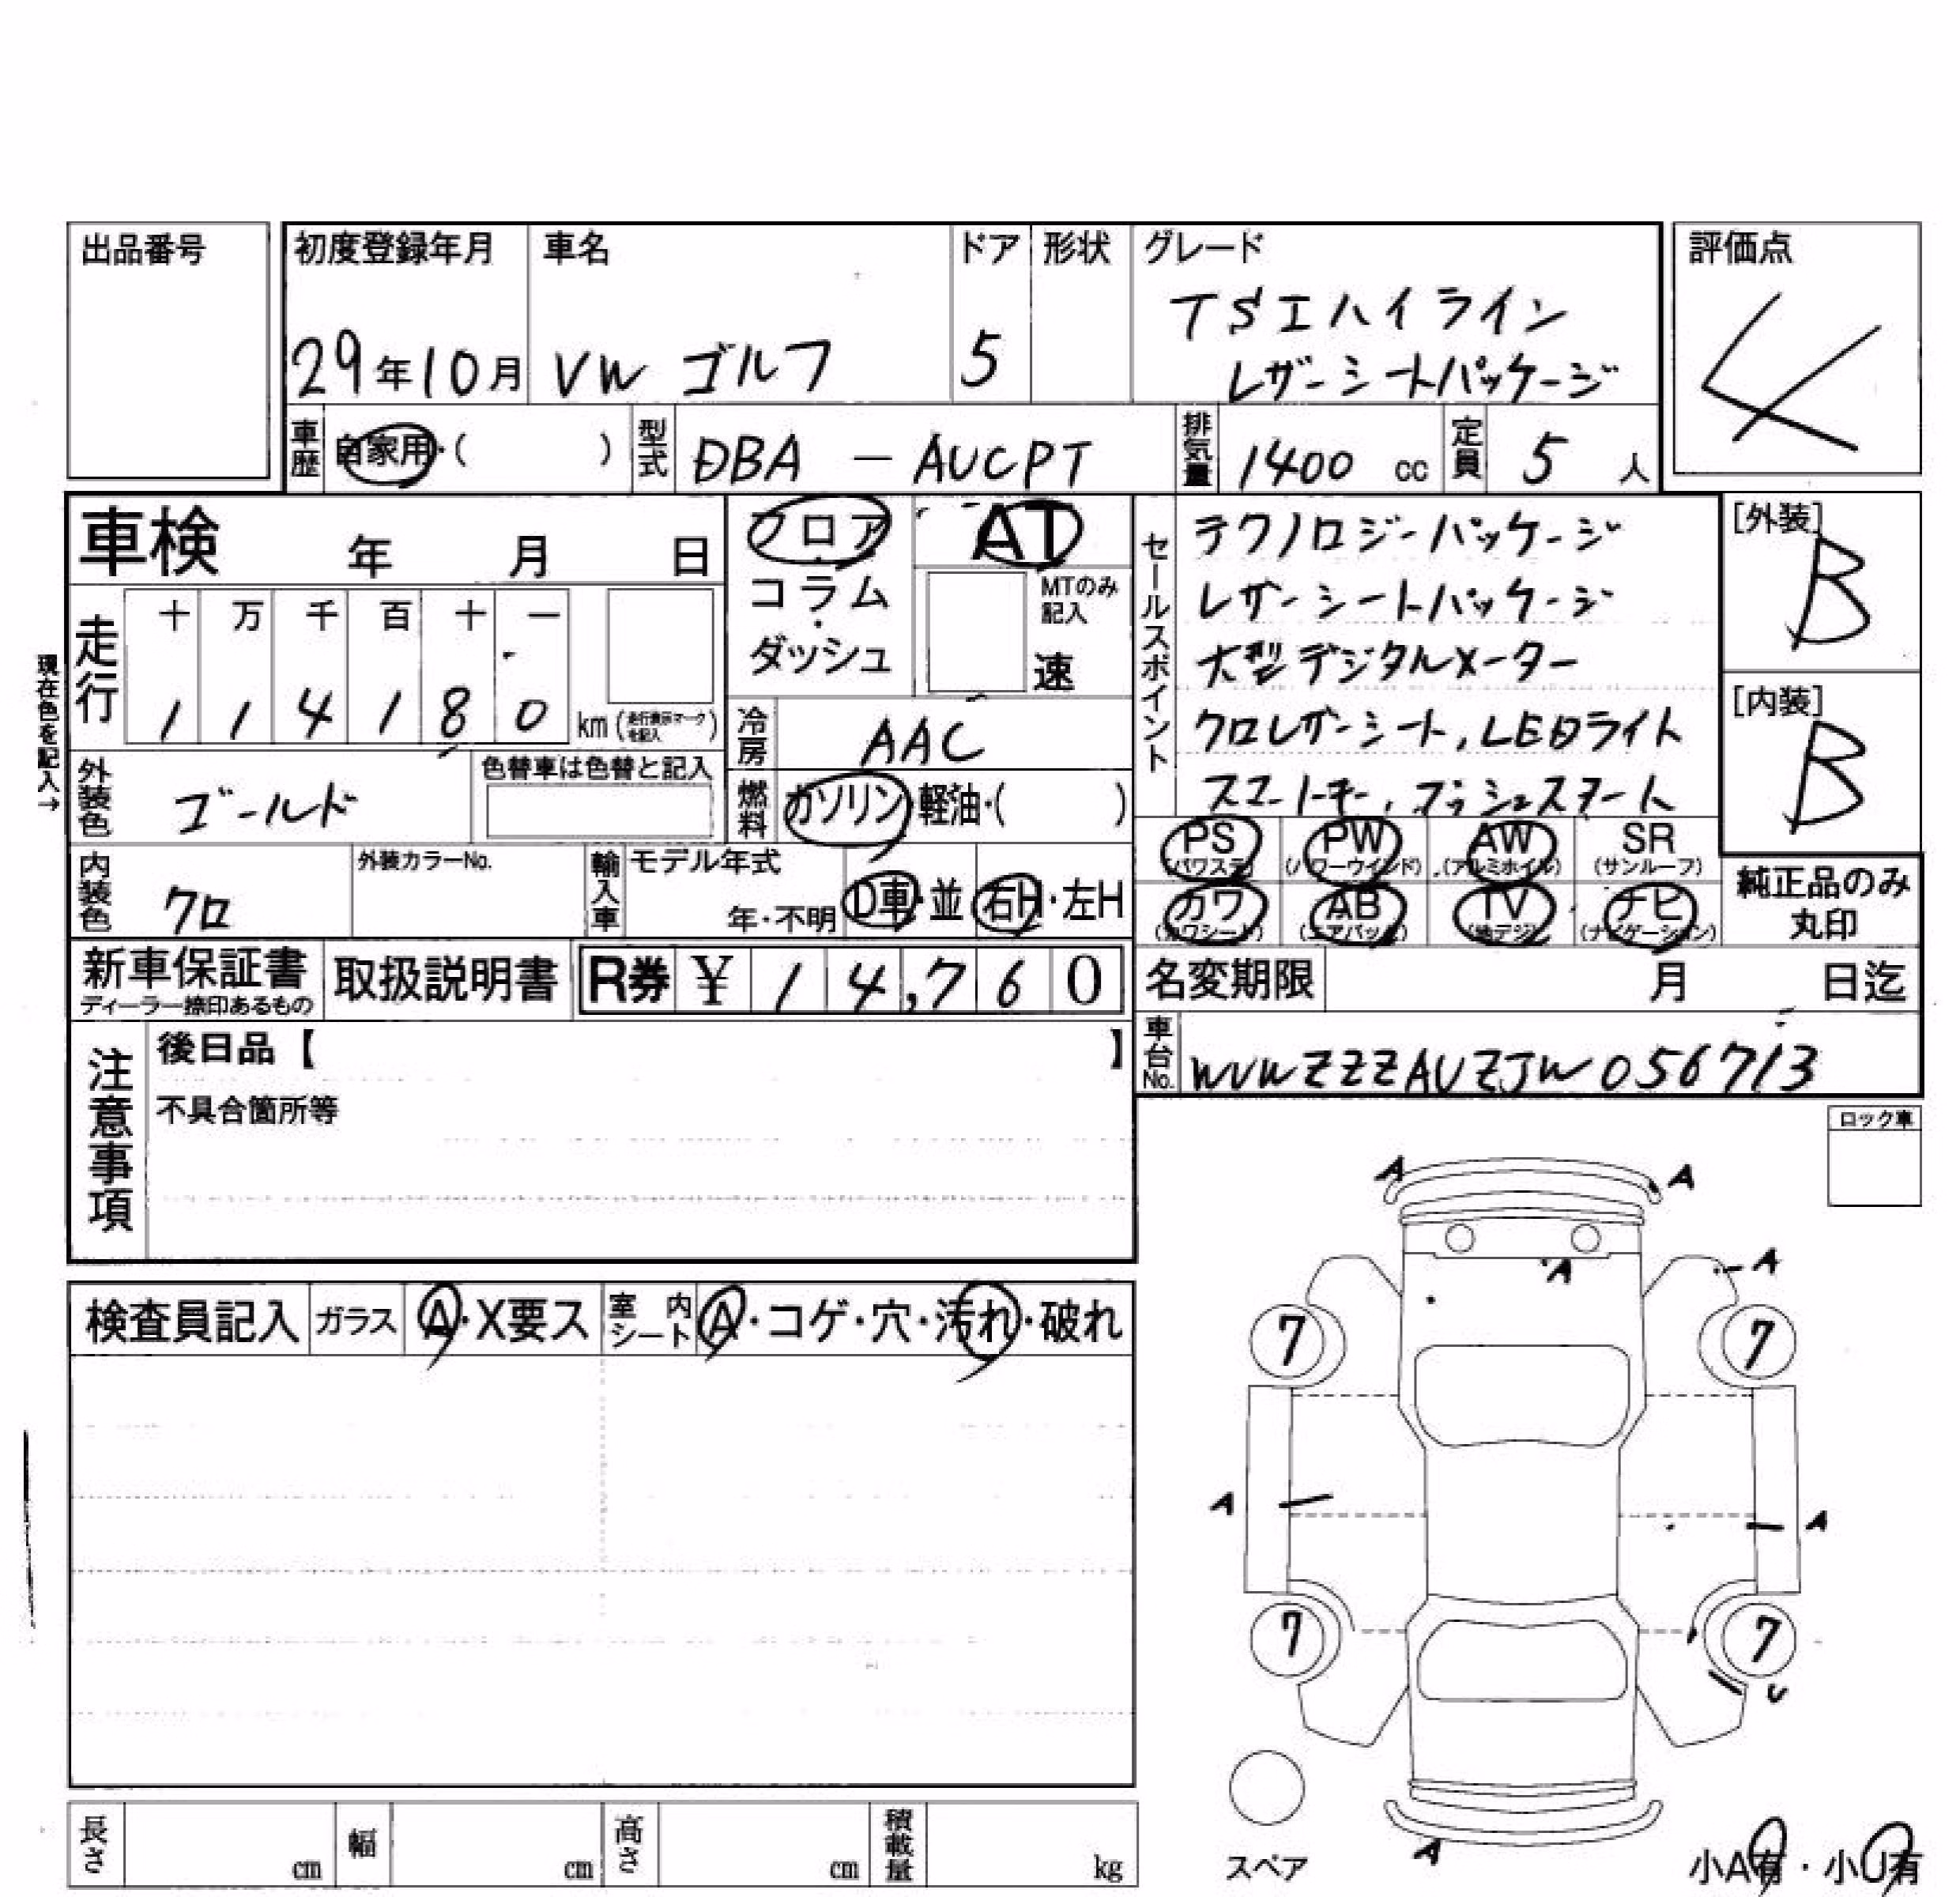 出品番号
初度登録年月
29年10月
車名
VW ゴルフ
ドア
5
形状
グレード
TSIハイライン
レザーシートパッケージ
評価点
4
車歴
自家用・(　　)
型式
DBA － AUCPT
排気量
1400 cc
定員
5 人
車検　年　月　日
フロア
・
コラム
・
ダッシュ
AT
MTのみ
記入
速
現在色を記入→
走行
十 万 千 百 十 一
1 1 4 1 8 0 km (走行表示マークを記入)
冷房
AAC
外装色
ゴールド
色替車は色替と記入
燃料
ガソリン・軽油・(　　)
セールスポイント
テクノロジーパッケージ
レザーシートパッケージ
大型デジタルメーター
クロレザーシート, LEDライト
スマートキー, プッシュスタート
[外装]
B
[内装]
B
内装色
クロ
外装カラーNo.
輸入車
モデル年式
年・不明
D車・並
右H・左H
PS
(パワステ)
PW
(パワーウインド)
AW
(アルミホイル)
SR
(サンルーフ)
カワ
(カワシート)
AB
(エアバック)
TV
(地デジ)
ナビ
(ナビゲーション)
純正品のみ
丸印
新車保証書
ディーラー捺印あるもの
取扱説明書
R券 ¥ 14,760
名変期限　月　日迄
車台No.
WVWZZZAUZJW056713
注意事項
後日品【　　】
不具合箇所等
ロック車
検査員記入
ガラス
A・X要ス
室内
シート
A・コゲ・穴・汚れ・破れ
A
A
A
A
7
7
A
A
7
7
U
A
スペア
小A有・小U有
長さ
cm
幅
cm
高さ
cm
積載量
kg